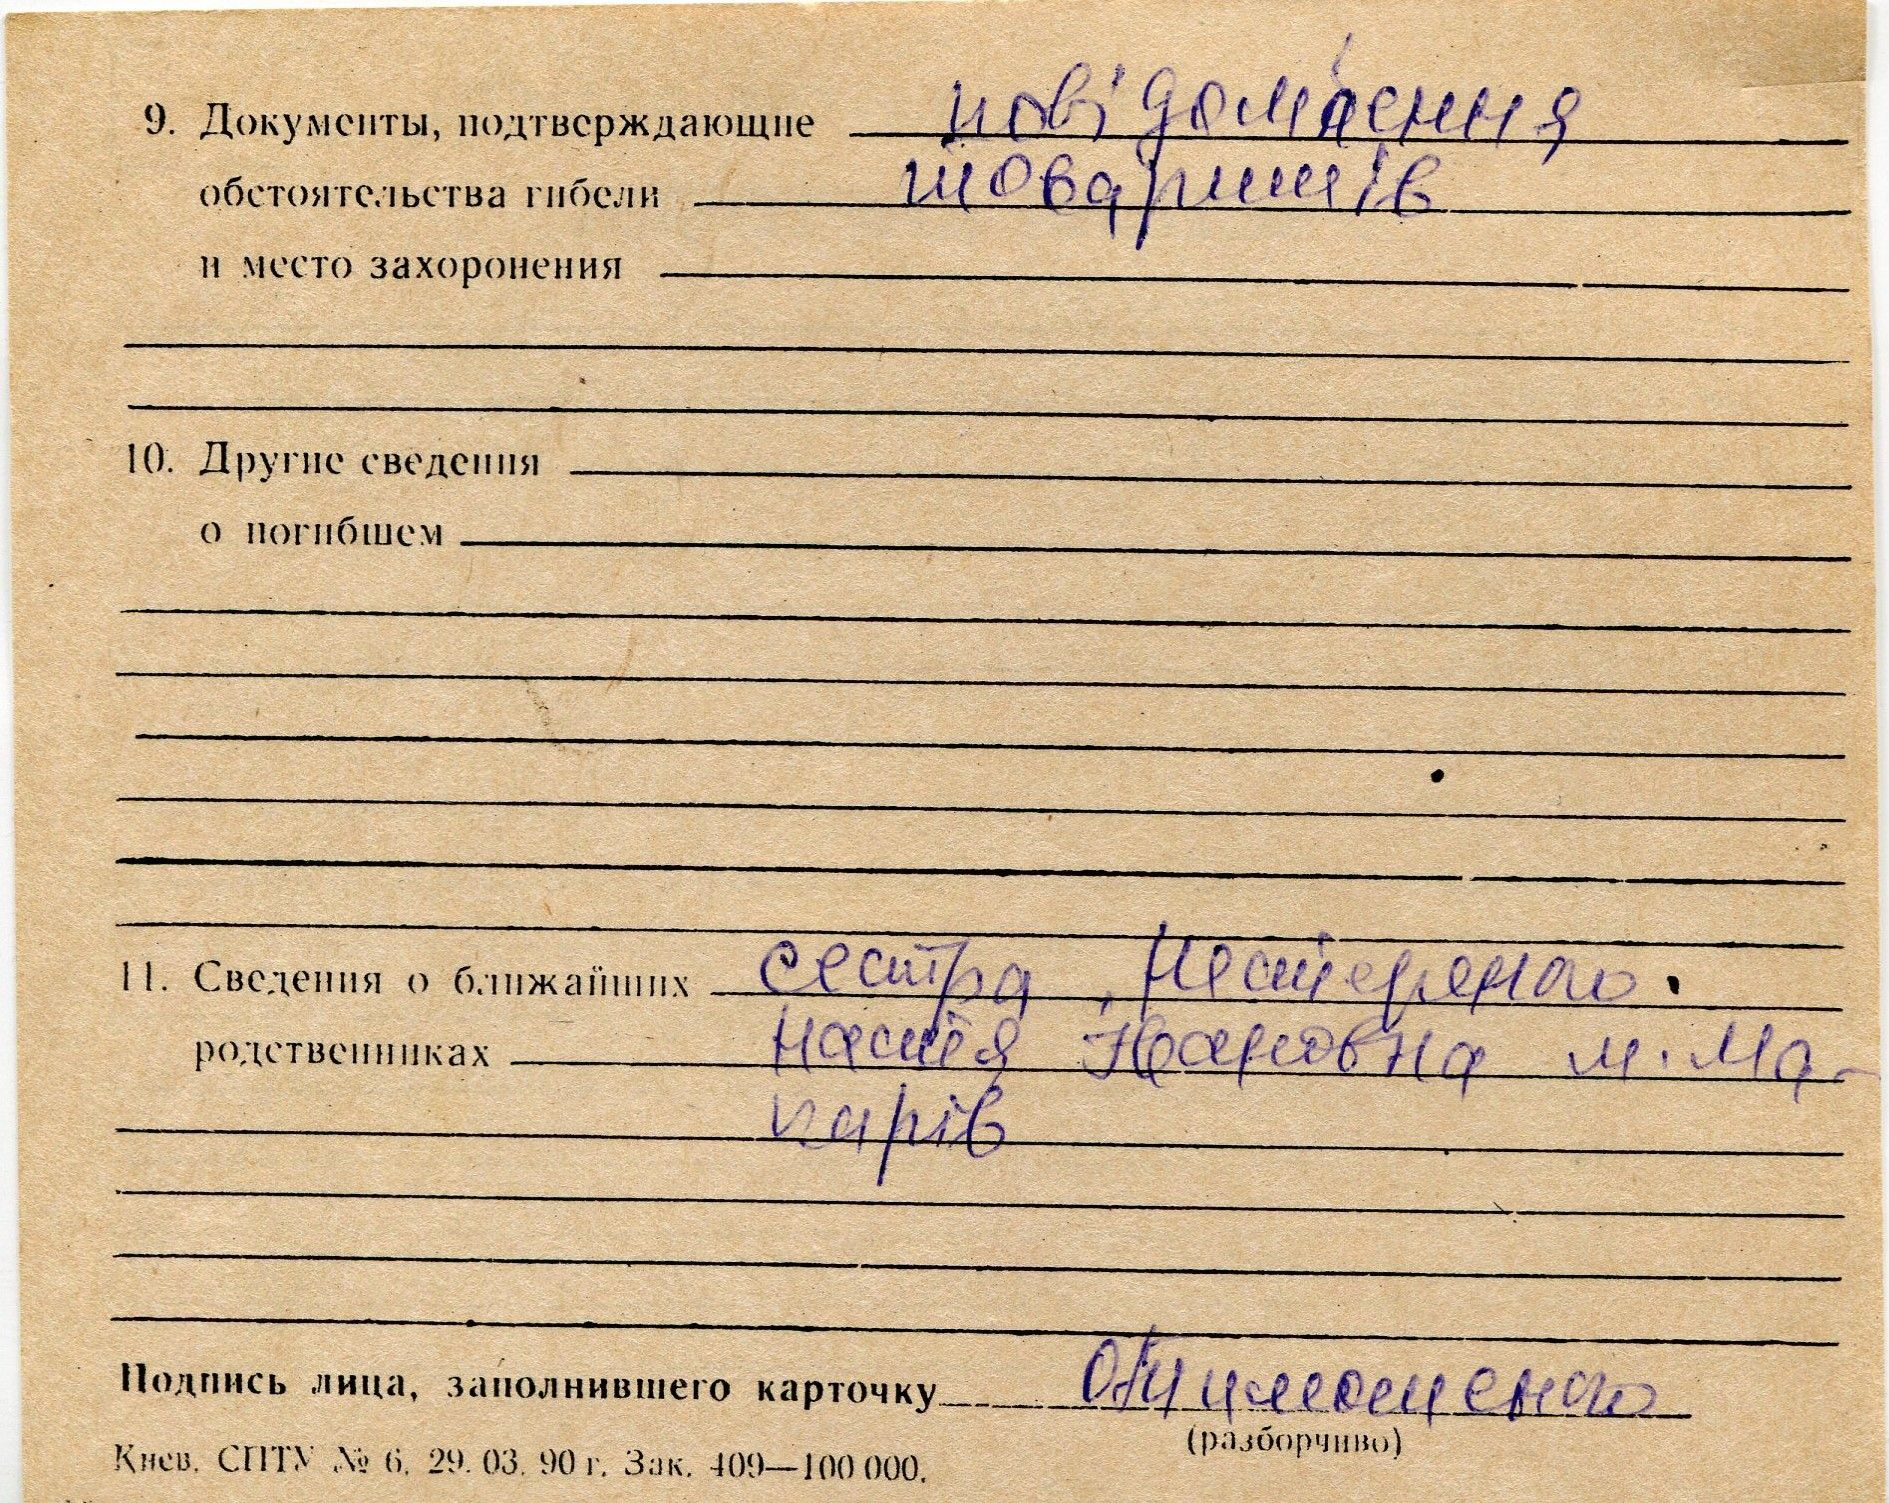 9. Документы, подтверждающие повідомлення
обстоятельства гибели товаришів
и место захоронения
10. Другие сведения
о погибшем
11. Сведения о ближайших сестра, Нестеренко
родственниках Настя Іванovна м. Ма-
карів
Подпись лица, заполнившего карточку
(разборчиво)
Киев. СПТУ № 6. 29. 03. 90 г. Зак. 409—100 000.